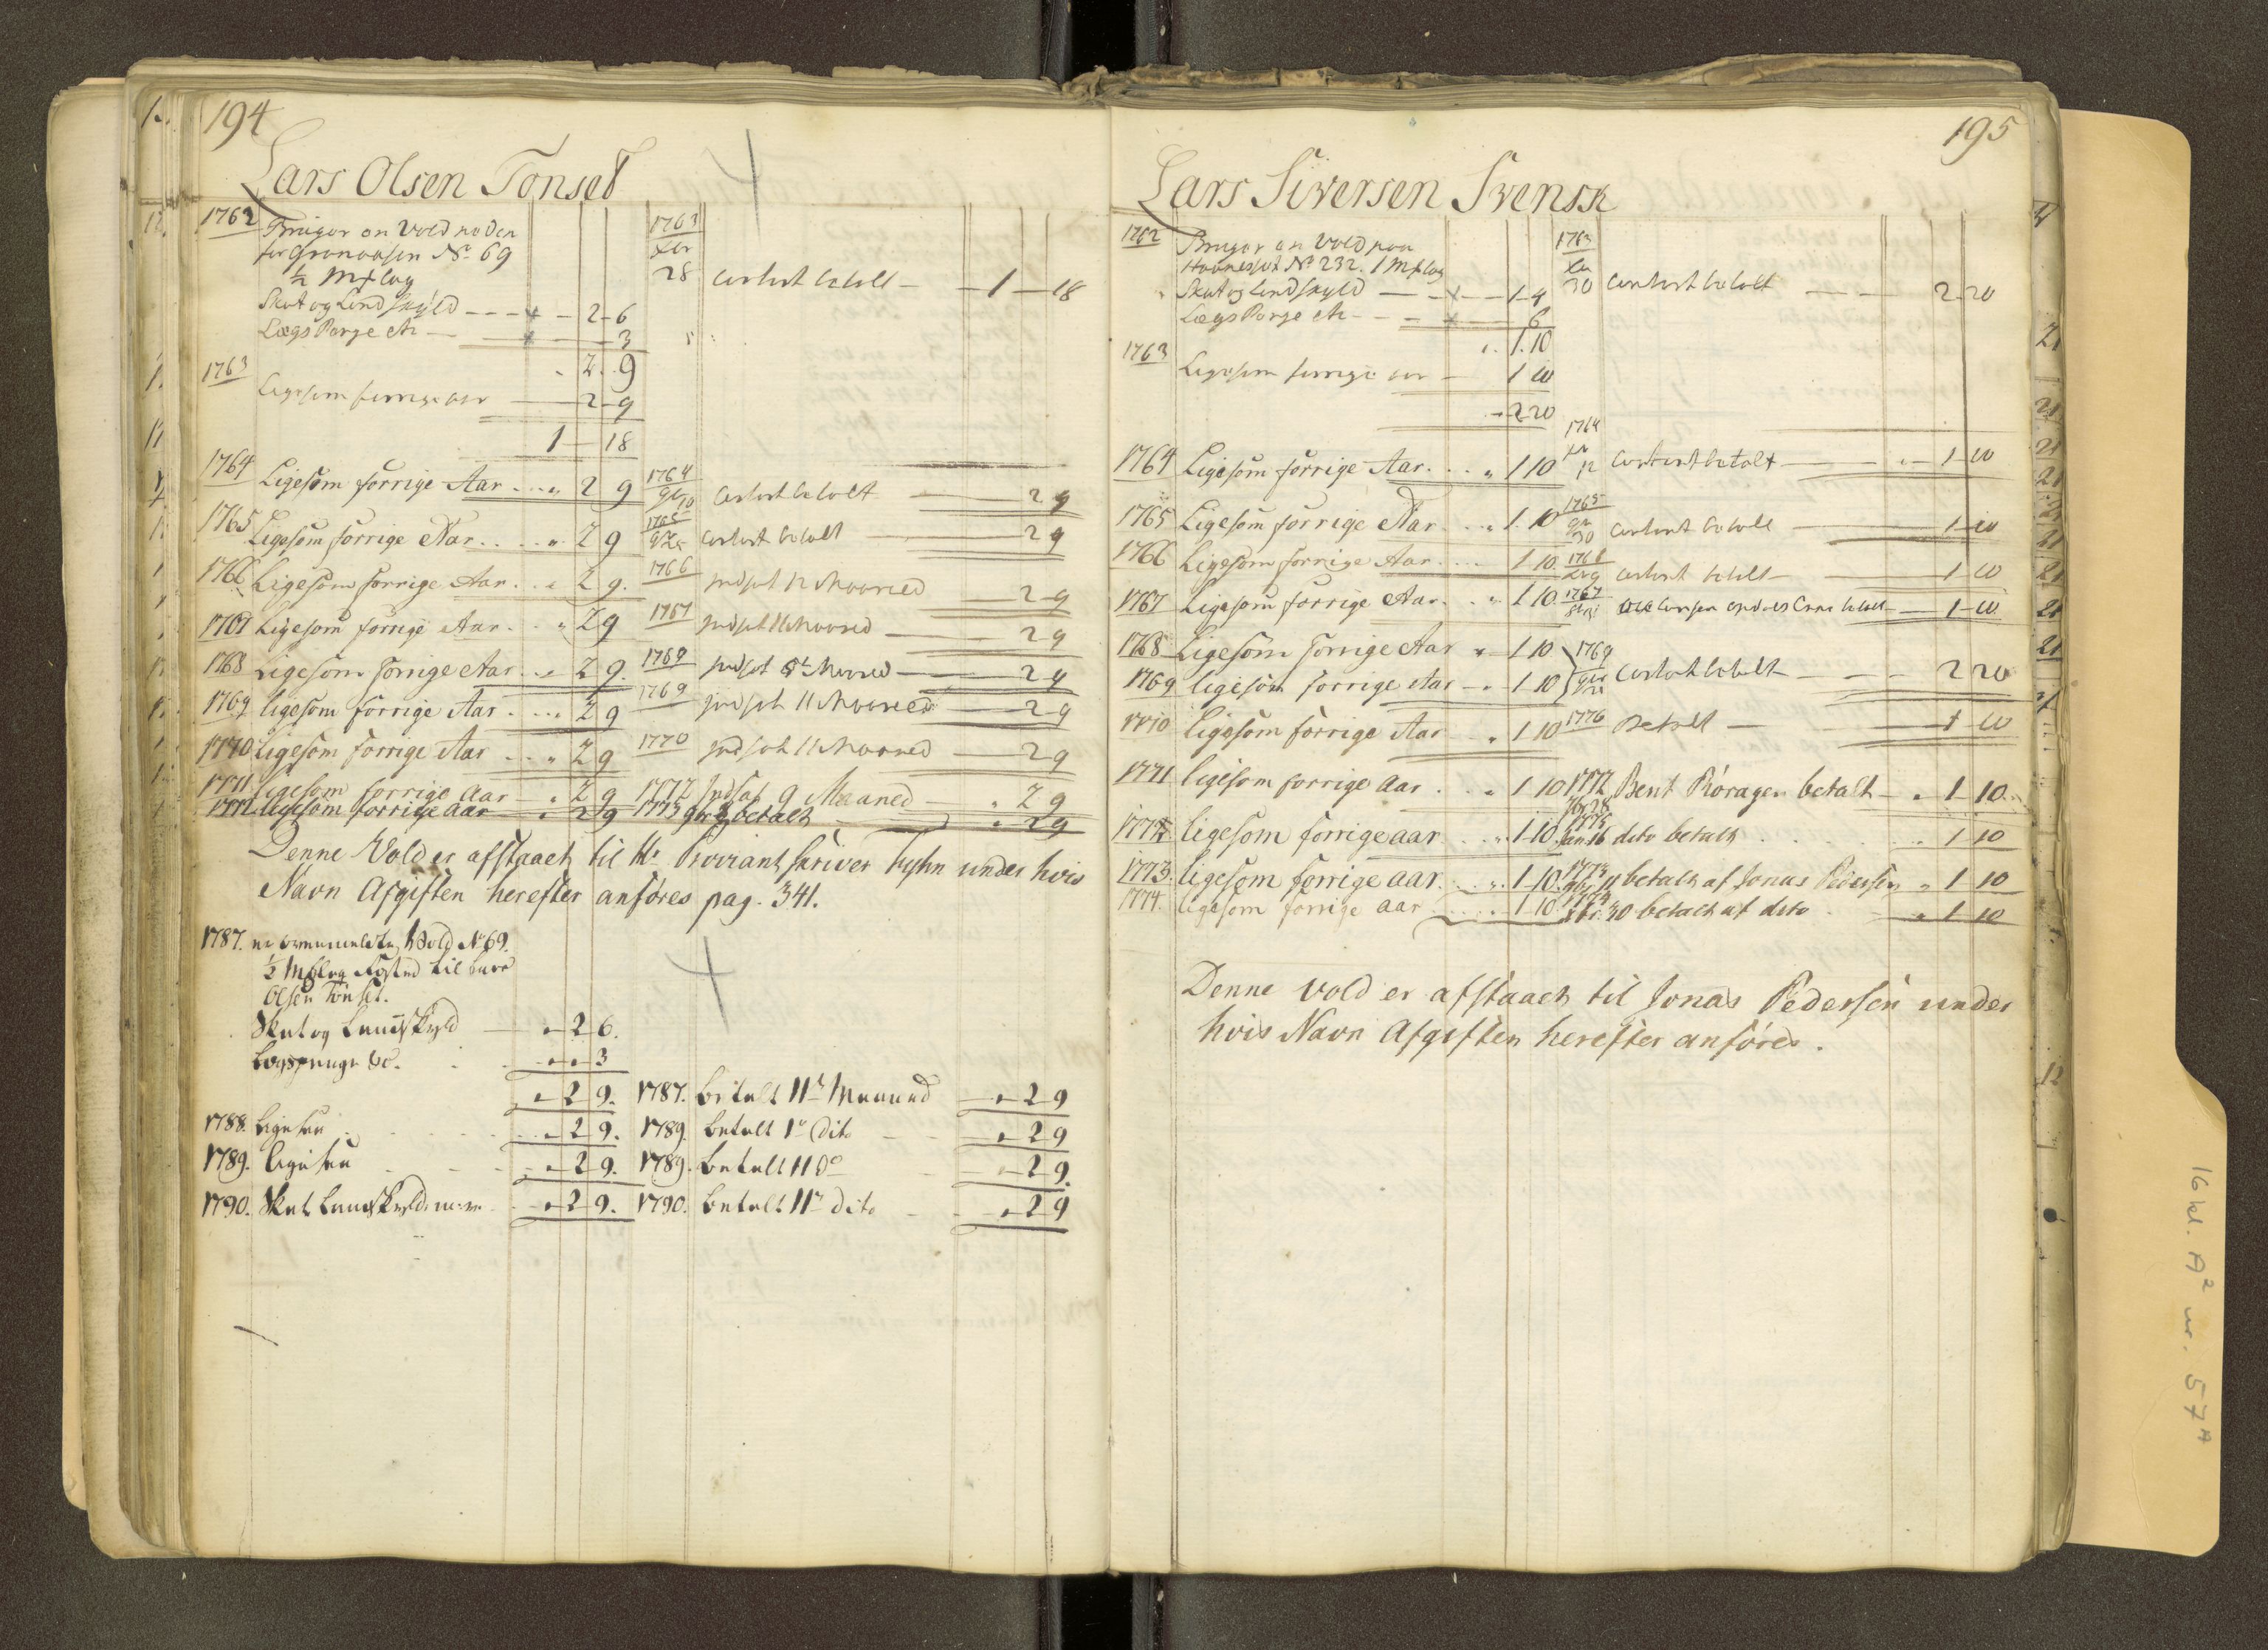 194
Lars Olsen Tonset
1762 Bruger en Vold neden
for Gronaasen No 69
½ Mk lag
Skat og Landskyld - - - 2 - 6
Lægs Penge etc - - 3
2 . 9
1763 Ligesom forrige aar - 2 - 9
1 - 18
1763 xbr 28 Contant betalt - 1 - 18
1764 Ligesom forrige Aar . . . 2 9 1764 Contant betalt 2 9
1765 Ligesom forrige Aar . . . . 2 9 1765 Contant betalt 2 9
1766 Ligesom forrige Aar . . 2 9. 1766 Indsat 12 Maaned 2 9
1767 Ligesom forrige Aar . . . 2 9 1767 Indsat 11 Maaned 2 9
1768 Ligesom forrige Aar . . 2 9. 1769 Indsat Maaned 2 9
1769 ligesom forrige Aar . . . 2 9 1769 Indsat 11 Maaned 2 9
1770 Ligesom forrige Aar . . . 2 9 1770 Indsat 11 Maaned 2 9
1771 ligesom forrige Aar 2 9 1772 Indsat 9 Maaned 2 9
1772 ligesom forrige aar 2 9 1773 betalt 2 9
Denne Vold er afstaaet til Hr Proviantskriver Tyhn under hvis
Navn Afgiften herefter anføres pag. 341.
1787. er ovenmeldte Vold No 69.
½ Mklag til Lars
Olsen Tønset.
Skat og Landskyld 2 6.
Lægspenge &c. 3
2 9. 1787. betalt 11te Maaned 2 9
1788. ligesaa 2 9. 1789. betalt 1te Dito 2 9
1789. ligesaa 2 9. 1789. betalt 11 Do 2 9.
1790. Skat Landskyld m: m. 2 9. 1790. betalt 11te dito 2 9
195
Lars Siversen Svensk
1762 Bruger en Vold paa
Haanesset No 232. 1 Mk lag
Skat og Landskyld 1 - 4
Lægs Penge etc 6
1. 10
1763 Ligesom forrige aar - 1 10
2 20
1763 xbr 30 Contant betalt 2 20
1764 Ligesom forrige Aar . . . 1 10 1764 xbr 12 Contant betalt 1 10
1765 Ligesom forrige Aar . . 1. 10 1765 30 Contant betalt 1 10
1766 Ligesom forrige Aar . . . 1 10. 1766 Contant betalt 1 10
1767 Ligesom forrige Aar . . 1 10. 1767 betalt 1 10
1768 Ligesom forrige Aar 1 10
1769 ligesom forrige Aar 1 10 1769 Contant betalt 2 20
1770 Ligesom forrige Aar 1 10 1770 Betalt 1 10
1771 ligesom forrige aar . . 1 10 1772 Bent Røragen betalt 1 10.
1772 ligesom forrige aar . . . 1 10. Jan 16 dito betalt . . . 1 10
1773. ligesom forrige aar . . . 1 10. 1773 11 betalt af Jonas Pedersen 1 10
1774. ligesom forrige aar . . . 1 10. 1774 xbr. 30 betalt af dito . 1 10
Denne vold er afstaaet til Jonas Pedersen under
hvis Navn Afgiften herefter anføres.
16 kl. A² nr. 57ᴬ